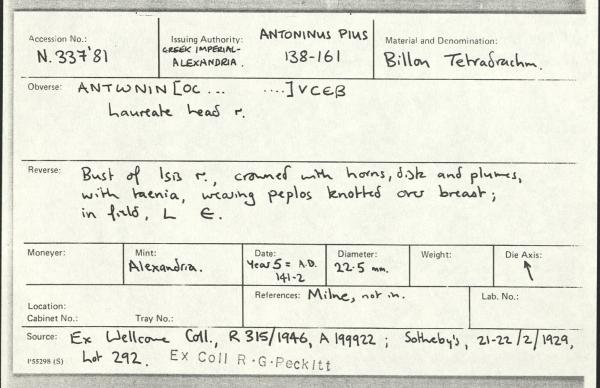 Accession No.:
N. 337'81
Issuing Authority:
GREEK IMPERIAL-
ALEXANDRIA.
ANTONINUS PIUS
138-161
Material and Denomination:
Billon Tetradrachm.
Obverse: ANTWNIN [OC ... ....] VCEB
Laureate head r.
Reverse: Bust of Isis r., crowned with horns, disk and plumes,
with taenia, wearing peplos knotted over breast;
in field, L Є.
Moneyer:
Mint:
Alexandria.
Date:
Year 5 = A.D.
141-2
Diameter:
22.5 mm.
Weight:
Die Axis:
↑
Location:
Cabinet No.: Tray No.:
References: Milne, not in.
Lab. No.:
Source: Ex Wellcome Coll., R 315/1946, A 199922 ; Sotheby's, 21-22/2/1929,
Lot 292. Ex Coll R.G.Peckitt
P55298 (S)